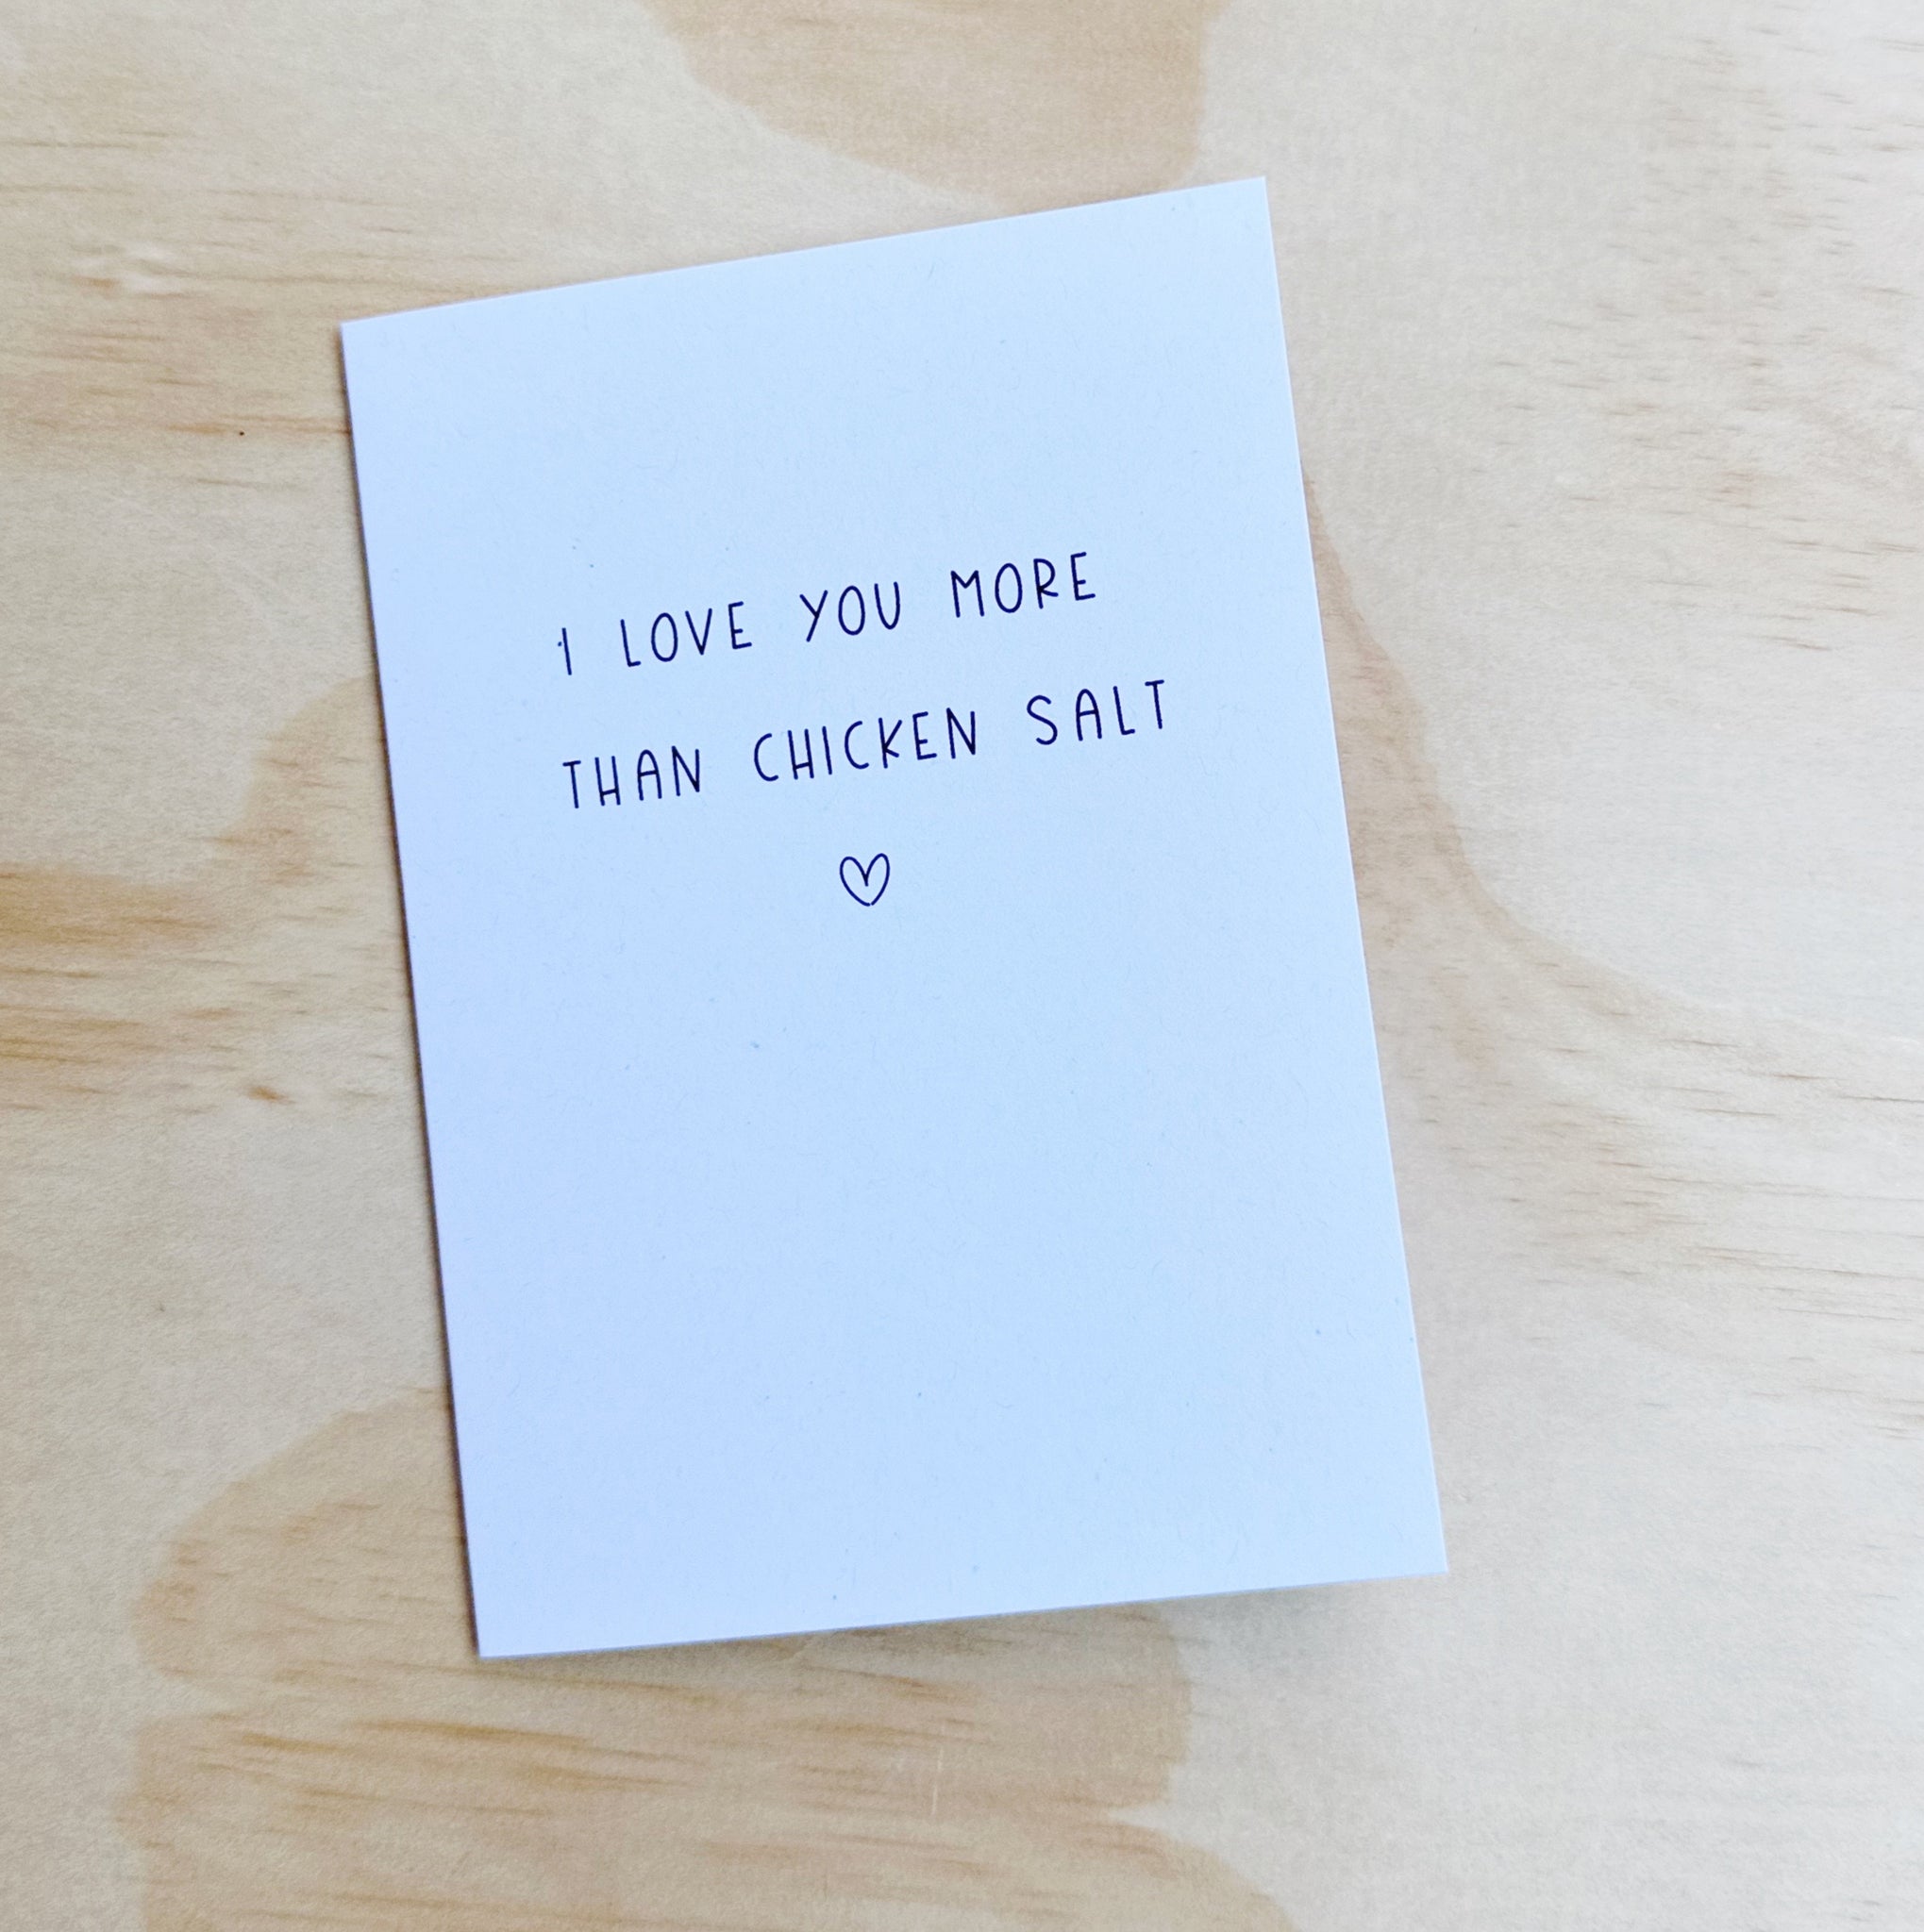 I LOVE YOU MORE
THAN CHICKEN SALT